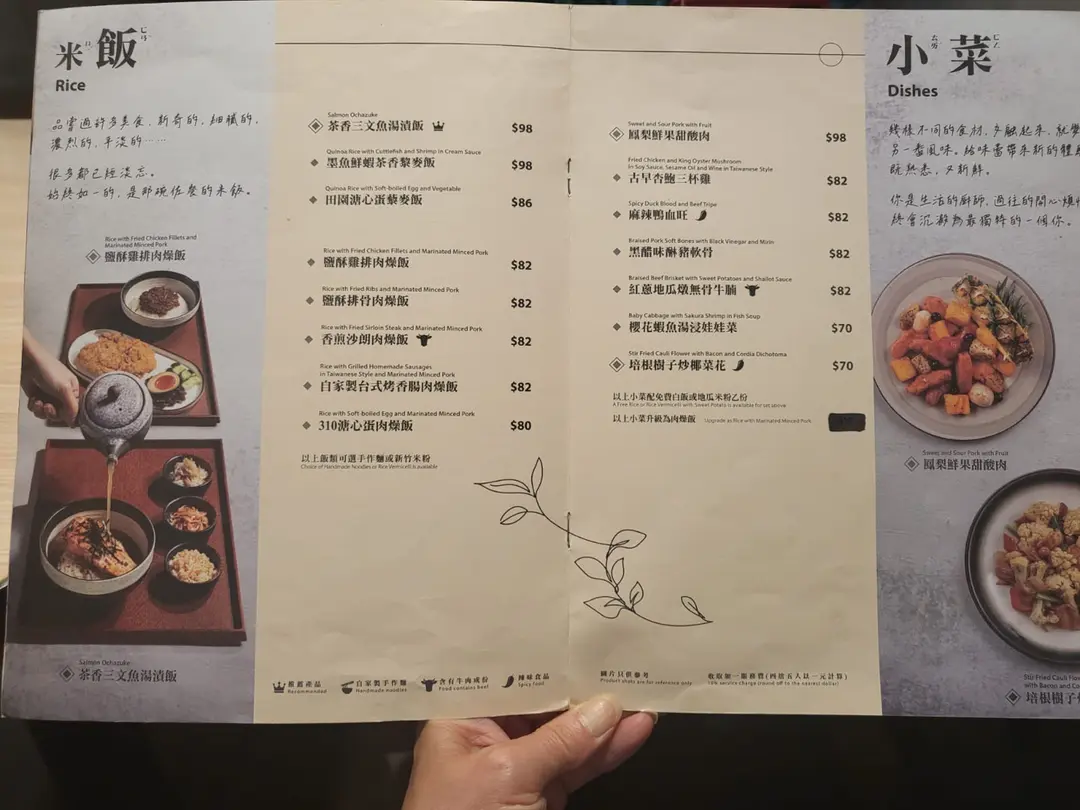 米飯
Rice
品嘗過許多美食，新奇的，細膩的，
濃烈的，平淡的……
很多都已經淡忘。
始終如一的，是那碗佐餐的米飯。
Rice with Fried Chicken Fillets and
Marinated Minced Pork
鹽酥雞排肉燥飯
Salmon Ochazuke
茶香三文魚湯漬飯
Salmon Ochazuke
茶香三文魚湯漬飯 $98
Quinoa Rice with Cuttlefish and Shrimp in Cream Sauce
墨魚鮮蝦茶香藜麥飯 $98
Quinoa Rice with Soft-boiled Egg and Vegetable
田園溏心蛋藜麥飯 $86
Rice with Fried Chicken Fillets and Marinated Minced Pork
鹽酥雞排肉燥飯 $82
Rice with Fried Ribs and Marinated Minced Pork
鹽酥排骨肉燥飯 $82
Rice with Fried Sirloin Steak and Marinated Minced Pork
香煎沙朗肉燥飯 $82
Rice with Grilled Homemade Sausages
in Taiwanese Style and Marinated Minced Pork
自家製台式烤香腸肉燥飯 $82
Rice with Soft-boiled Egg and Marinated Minced Pork
310溏心蛋肉燥飯 $80
以上飯類可選手作麵或新竹米粉
Choice of Handmade Noodles or Rice Vermicelli is available
推薦產品
Recommended
自家製手作麵
Handmade noodles
含有牛肉成份
Food contains beef
辣味食品
Spicy food
Sweet and Sour Pork with Fruit
鳳梨鮮果甜酸肉 $98
Fried Chicken and King Oyster Mushroom
In Soy Sauce, Sesame Oil and Wine in Taiwanese Style
古早杏鮑三杯雞 $82
Spicy Duck Blood and Beef Tripe
麻辣鴨血旺 $82
Braised Pork Soft Bones with Black Vinegar and Mirin
黑醋味醂豬軟骨 $82
Braised Beef Brisket with Sweet Potatoes and Shallot Sauce
紅蔥地瓜燉無骨牛腩 $82
Baby Cabbage with Sakura Shrimp in Fish Soup
櫻花蝦魚湯浸娃娃菜 $70
Stir Fried Cauli Flower with Bacon and Cordia Dichotoma
培根樹子炒椰菜花 $70
以上小菜配免費白飯或地瓜米粉乙份
A Free Rice or Rice Vermicelli with Sweet Potato is available for set above
以上小菜升級為肉燥飯 Upgrade as Rice with Marinated Minced Pork
圖片只供參考
Product shots are for reference only
收取加一服務費(四捨五入以一元計算)
10% service charge (round off to the nearest dollar)
小菜
Dishes
幾樣不同的食材，交融起來，就變
另一番風味。給味蕾帶來新的體
既熟悉，又新鮮。
你是生活的廚師，過往的開心煩
終會沉澱為最獨特的一個你。
Sweet and Sour Pork with Fruit
鳳梨鮮果甜酸肉
Stir Fried Cauli Flow
with Bacon and Co
培根樹子